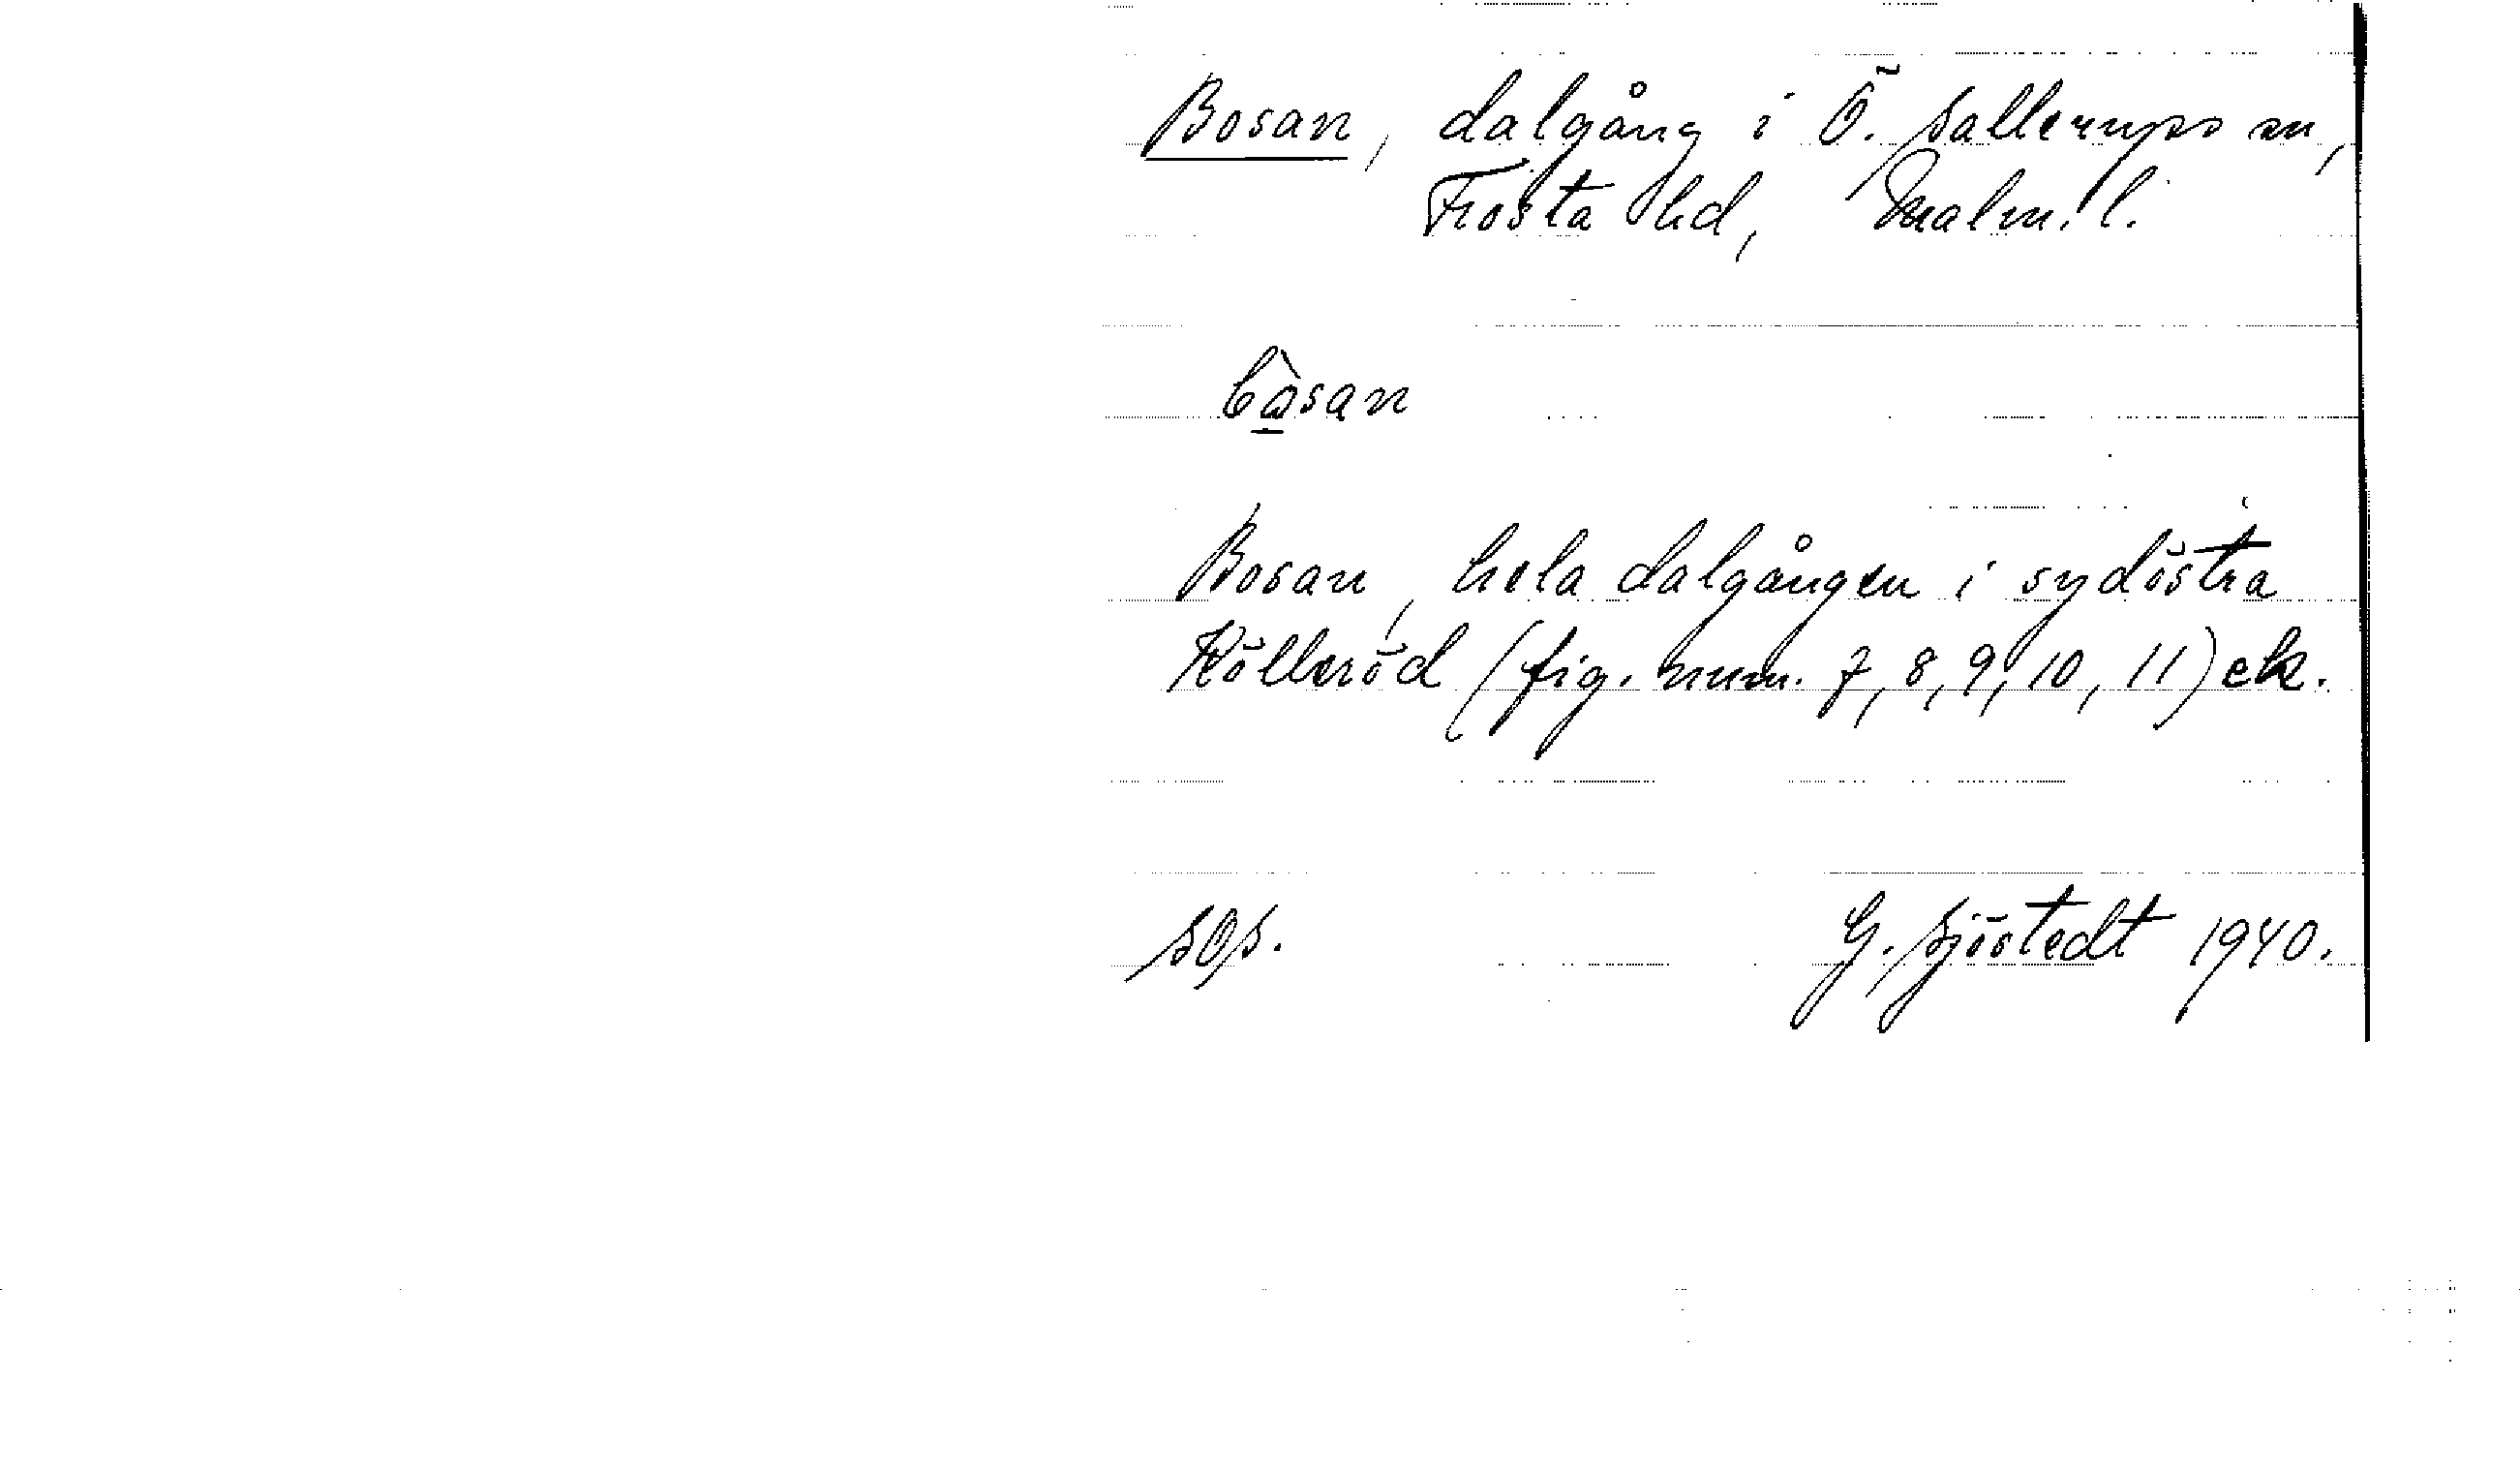 Bosan, dalgång i Ö. Sallerups sn,
Frosta hd, Malm. l.
bâ̱san
Bosan, hela dalgången i sydöstra
Kölleröd (fig. num. 7, 8, 9, 10, 11) ek.
SOS.
G. Sjöstedt 1940.